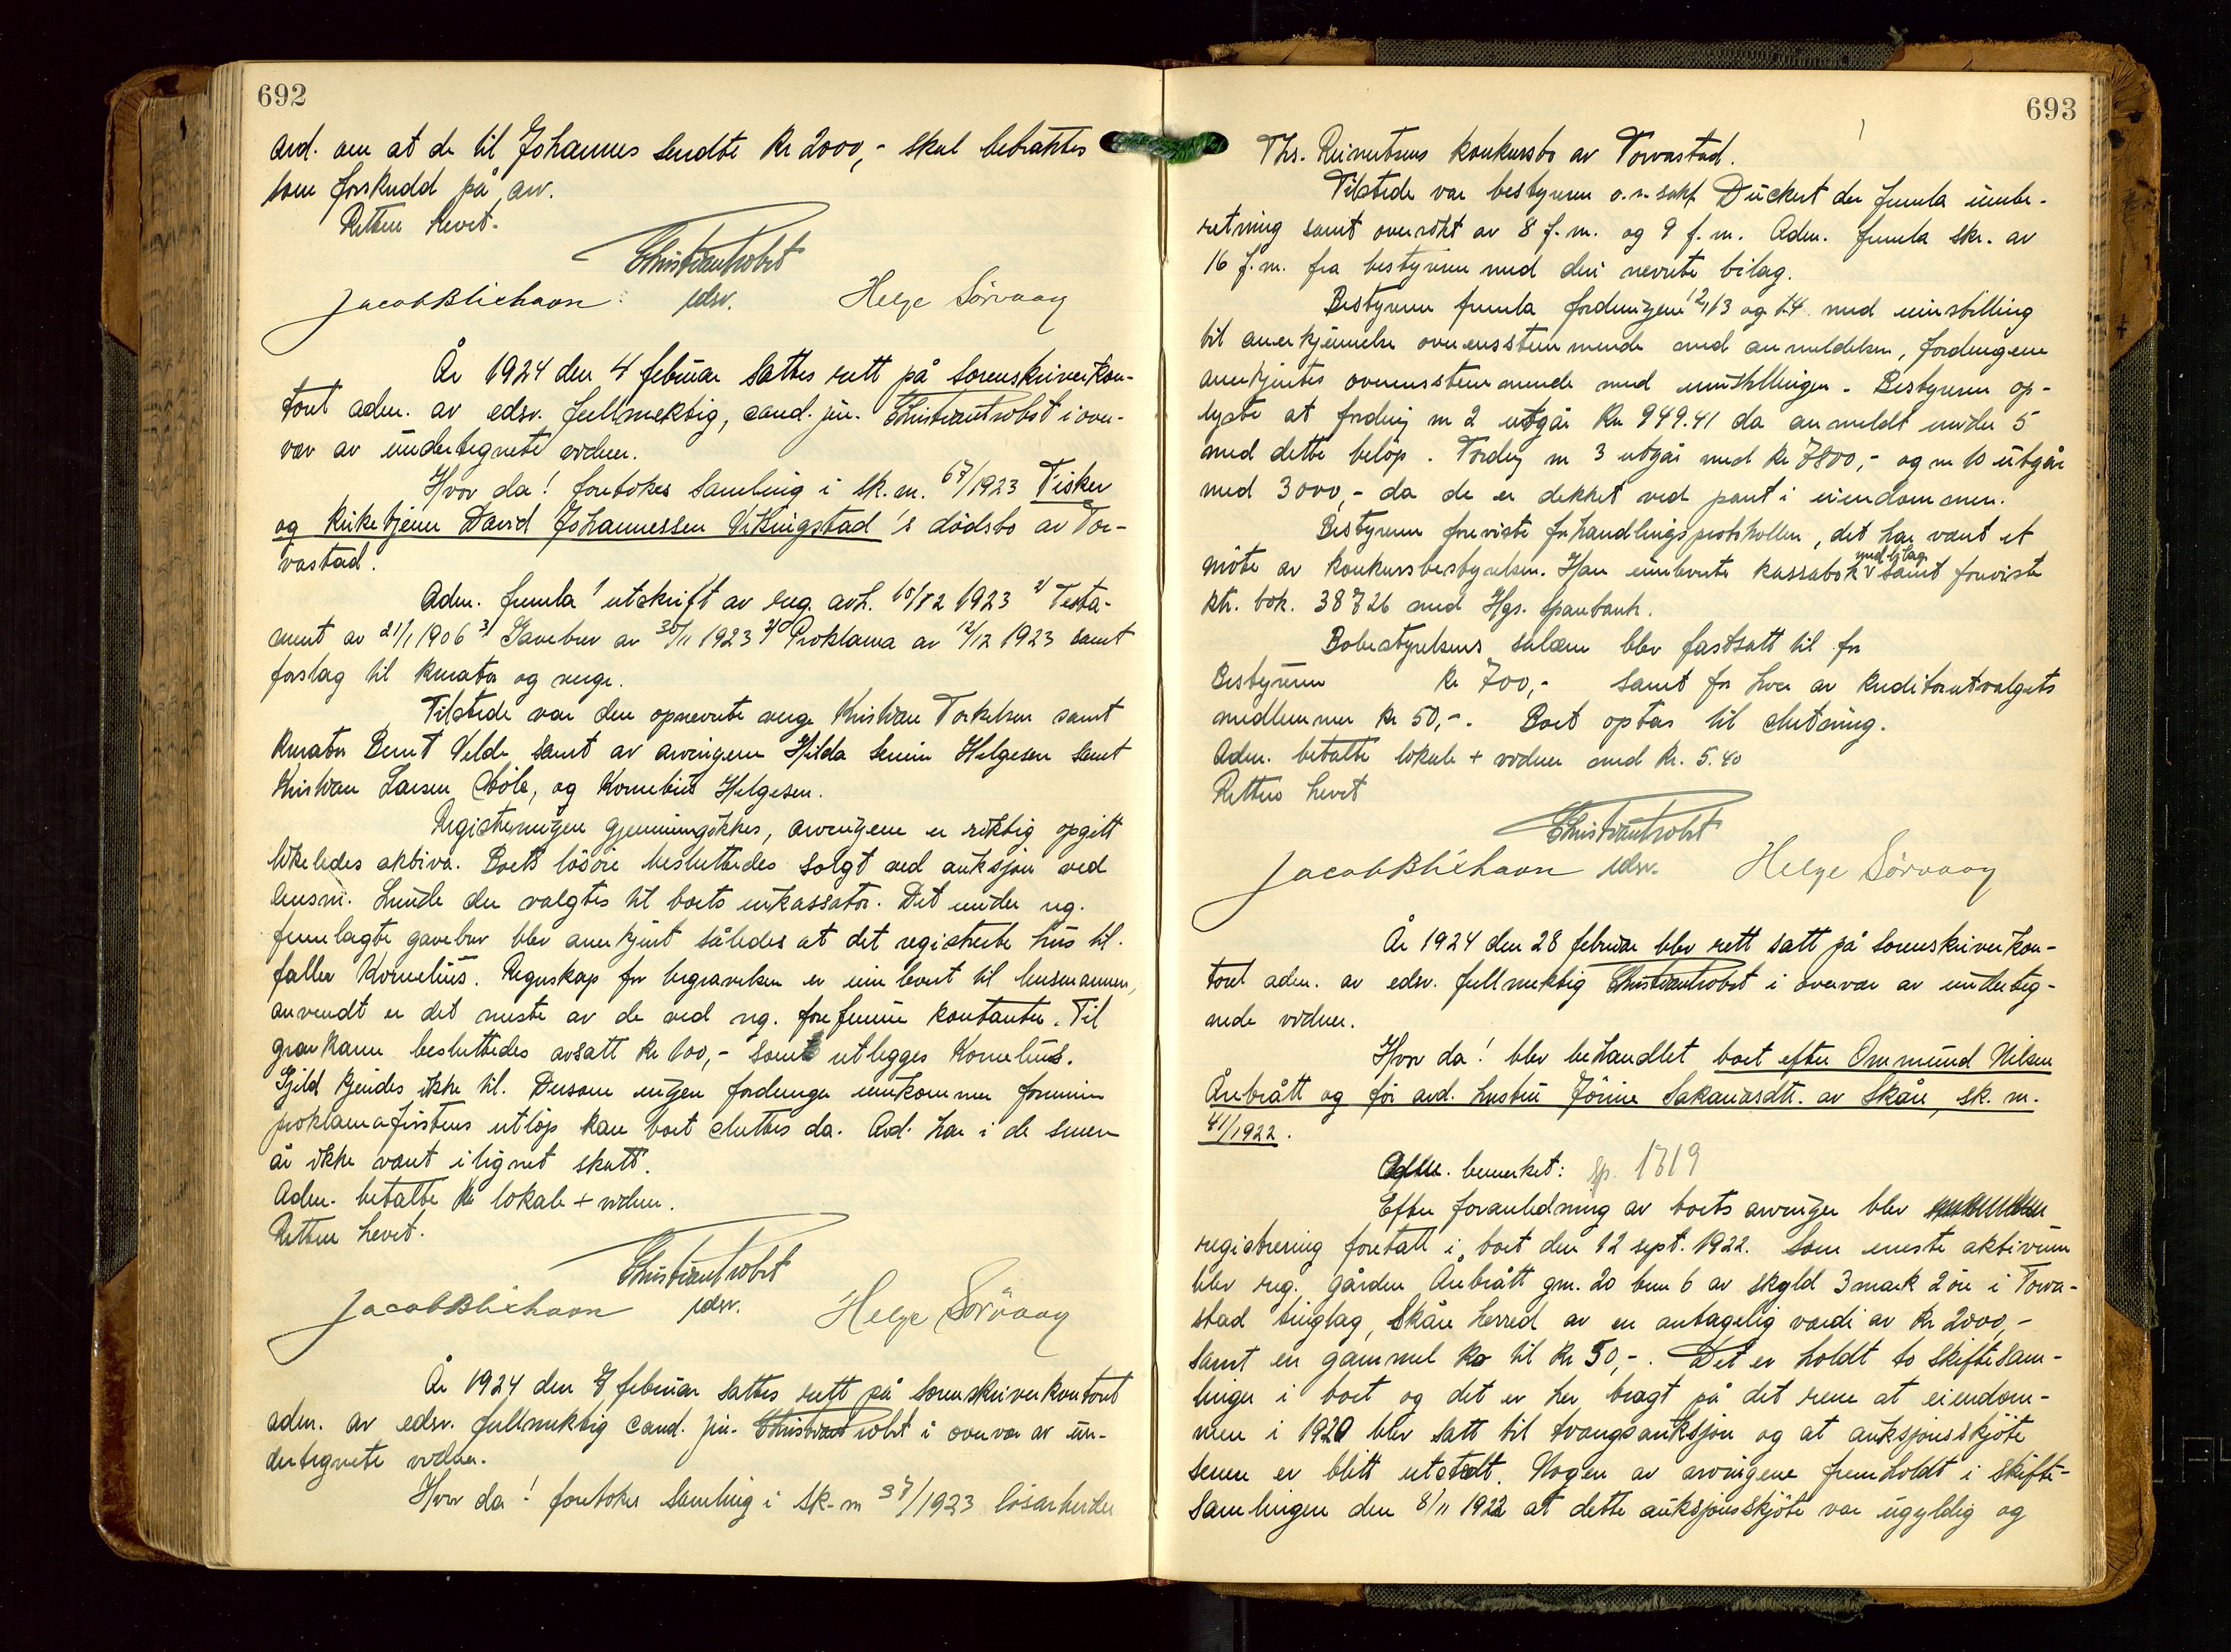 692
avd. om at de til Johannes sendte Kr 2000,- skal betraktes
som forskudd på arv.
Retten hevet.
Christian Trobst
Jacob Blikhavn edsv. Helge Sørvaag
År 1924 den 4 februar sattes rett på Sorenskriverkon-
toret adm. av edsv. fullmektig, cand. jur. Christian Trobst i over-
vær av undertegnete vidner.
Hvor da! foretokes samling i sk. nr. 67/1923 Fisker
og kirketjener David Johannessen Vikingstad's dødsbo av Tor-
vastad.
Adm. fremla 1 utskrift av reg. avh. 10/12 1923 2) Testa-
ment av 21/1 1906 3) Gavebrev av 30/11 1923 4) Proklama av 12/12 1923 samt
forslag til kurator og verge.
Tilstede var den opnevnte verge Kristian Torkelsen samt
kurator Bernt Velde samt av arvingene Hilda Helgesen samt
Kristian Larsen Støle, og Kornelius Helgesen.
Registreringen gjennemgikkes, arvingene er riktig opgitt
likeledes aktiva. Boets løsøre besluttedes solgt ved auksjon ved
lensm. Lunde der valgtes til boets inkassator. Det under reg.
fremlagte gavebrev blev anerkjent således at det registrerte hus til-
faller Kornelius. Regnskap for begravelsen er innlevert til lensmannen,
anvendt er det meste av de ved reg. forefunne kontanter. Til
gravkann besluttedes avsatt kr 100,- som utlegges Kornelius.
Gjeld kjendes ikke til. Dersom ingen fordringer innkommer forinnen
proklamafristens utløp kan boet sluttes da. Avd. har i de senere
år ikke vært ilignet skatt.
Adm. betalte kr lokale + vidner.
Retten hevet.
Christian Trobst
Jacob Blikhavn edsv. Helge Sørvaag
År 1924 den 7 februar sattes rett på Sorenskriverkontoret
adm. av edsv. fullmektig cand. jur. Christian Trobst i overvær av un-
dertegnete vidner.
Hvor da! foretokes samling i sk. nr 37/1923 løsarbeider
693
Ths. Reinertsens konkursbo av Torvastad.
Tilstede var bestyreren o.r. sakf. Duckert der fremla innbe-
retning samt oversikt av 8 f.m. og 9 f.m. Adm. fremla skr. av
16 f.m. fra bestyreren med deri nevnte bilag.
Bestyreren fremla fordringene 12, 13 og 14 med innstilling
til anerkjennelse overensstemmende med anmeldelsen, fordringene
anerkjentes overensstemmende med innstillingen. Bestyreren op-
lyste at fordring nr 2 utgår Kr 949.41 da anmeldt under 5
med dette beløp. Fordring nr 3 utgår med kr 7800,- og nr 10 utgår
med 3000,- da de er dekket ved pant i eiendommen.
Bestyreren foreviste forhandlingsprotokollen, det har vært et
møte av konkursbestyrelsen. Han innleverte kassabok med bilag samt foreviste
ktr. bok. 38726 med Hgs. Sparebank.
Bobestyrelsens salær blev fastsatt til for
Bestyreren kr 700,- samt for hver av kreditorutvalgets
medlemmer kr 50,-. Boet optas til slutning.
Adm. betalte lokale + vidner med kr. 5.40
Retten hevet
Christian Trobst
Jacob Blikhavn edsv. Helge Sørvaag
År 1924 den 28 februar blev rett satt på Sorenskriverkon-
toret adm. av edsv. fullmektig Christian Trobst i overvær av underteg-
nede vidner.
Hvor da! blev behandlet boet efter Ommund Nilsen
Ånbrått og før avd. hustru Jørine Sakariasdtr. av Skåre, sk. nr.
41/1922.
bemerket: Sp. 1319
Efter foranledning av boets arvinger blev
registrering foretatt i boet den 12 sept. 1922. Som eneste aktivum
blev reg. gården Ånbrått gnr. 20 bnr 6 av skyld 3 mark 2 øre i Torva-
stad tinglag, Skåre herred av en antagelig verdi av kr 2000,-
samt en gammel ko til kr 50,-. Det er holdt to skiftesam-
linger i boet og det er her bragt på det rene at eiendom-
men i 1920 blev satt til tvangsauksjon og at auksjonsskjøte
senere er blitt utstedt. Nogen av arvingene fremholdt i skifte-
samlingen den 8/11 1922 at dette auksjonsskjøte var ugyldig og